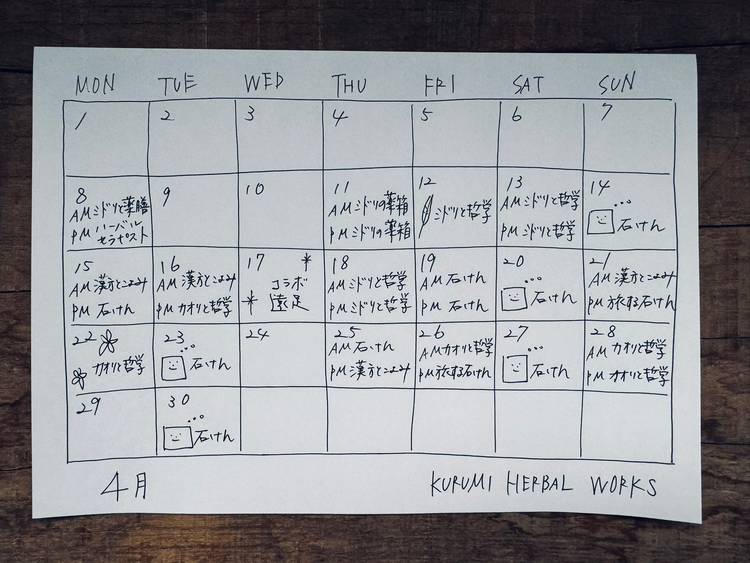 MON TUE WED THU FRI SAT SUN
1 2 3 4 5 6 7
8 9 10 11 12 13 14
AMミドリと薬膳 AMミドリの薬箱 ミドリと哲学 AMミドリと哲学 石けん
PMハーバルセラピスト PMミドリの薬箱 PMミドリと哲学
15 16 17 18 19 20 21
AM漢方とこよみ AM漢方とこよみ コラボ AMミドリと哲学 AM石けん 石けん AM漢方とこよみ
PM石けん PMカオリと哲学 遠足 PMミドリと哲学 PM石けん PM旅する石けん
22 23 24 25 26 27 28
カオリと哲学 石けん AM石けん AMカオリと哲学 石けん AMカオリと哲学
PM漢方とこよみ PM旅する石けん PMカオリと哲学
29 30
石けん
4月 KURUMI HERBAL WORKS